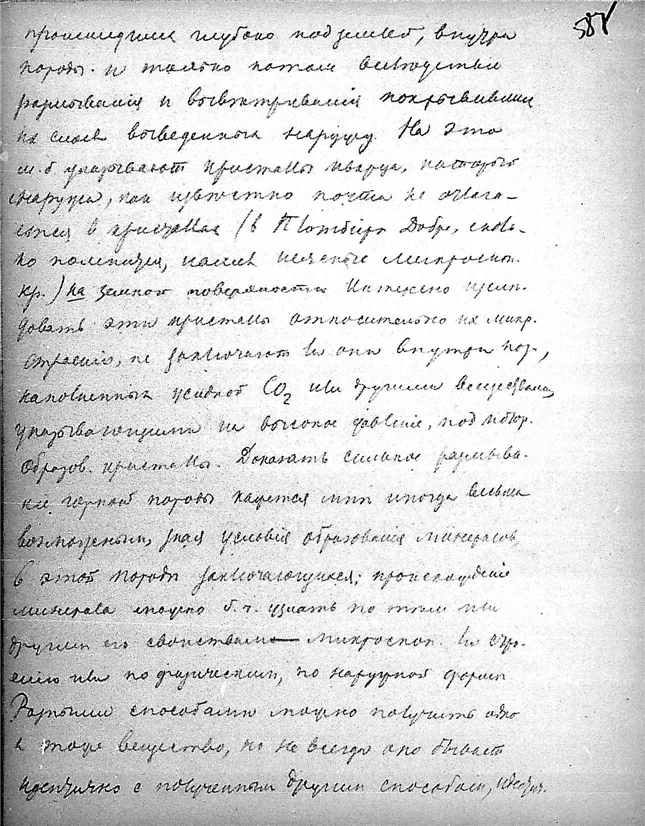 587
происшедших глубоко под землей, внутри
породы. и только потом вследствии
размывания и выветривания покрывавших
их слоев выведенных наружу. На это
м. б. указывают кристаллы кварца, которого
снаружи, как известно почти не отлага-
ется в кристаллах (в Пломбьере Добре, сколь-
ко помнится, нашел неясные микроскоп.
кр.) на земной поверхности. Интересно иссле-
довать эти кристаллы относительно их микр.
строения, не заключают ли они внутри пор,
наполненных жидкой CO2 или другими веществами,
указывающими на высокое давление, под котор.
образов. кристаллы. Доказать сильное размыва-
ние горной породы кажется мне иногда весьма
возможным, зная условия образования минералов,
в этой породе заключающихся; происхождение
минерала можно б. ч. узнать по тем или
другим его свойствам — микроскоп. ли стро-
ению или по физическим, по наружной форме
Разными способами можно получить одно
и тоже вещество, но не всегда оно бывает
идентично с полученным другим способом,